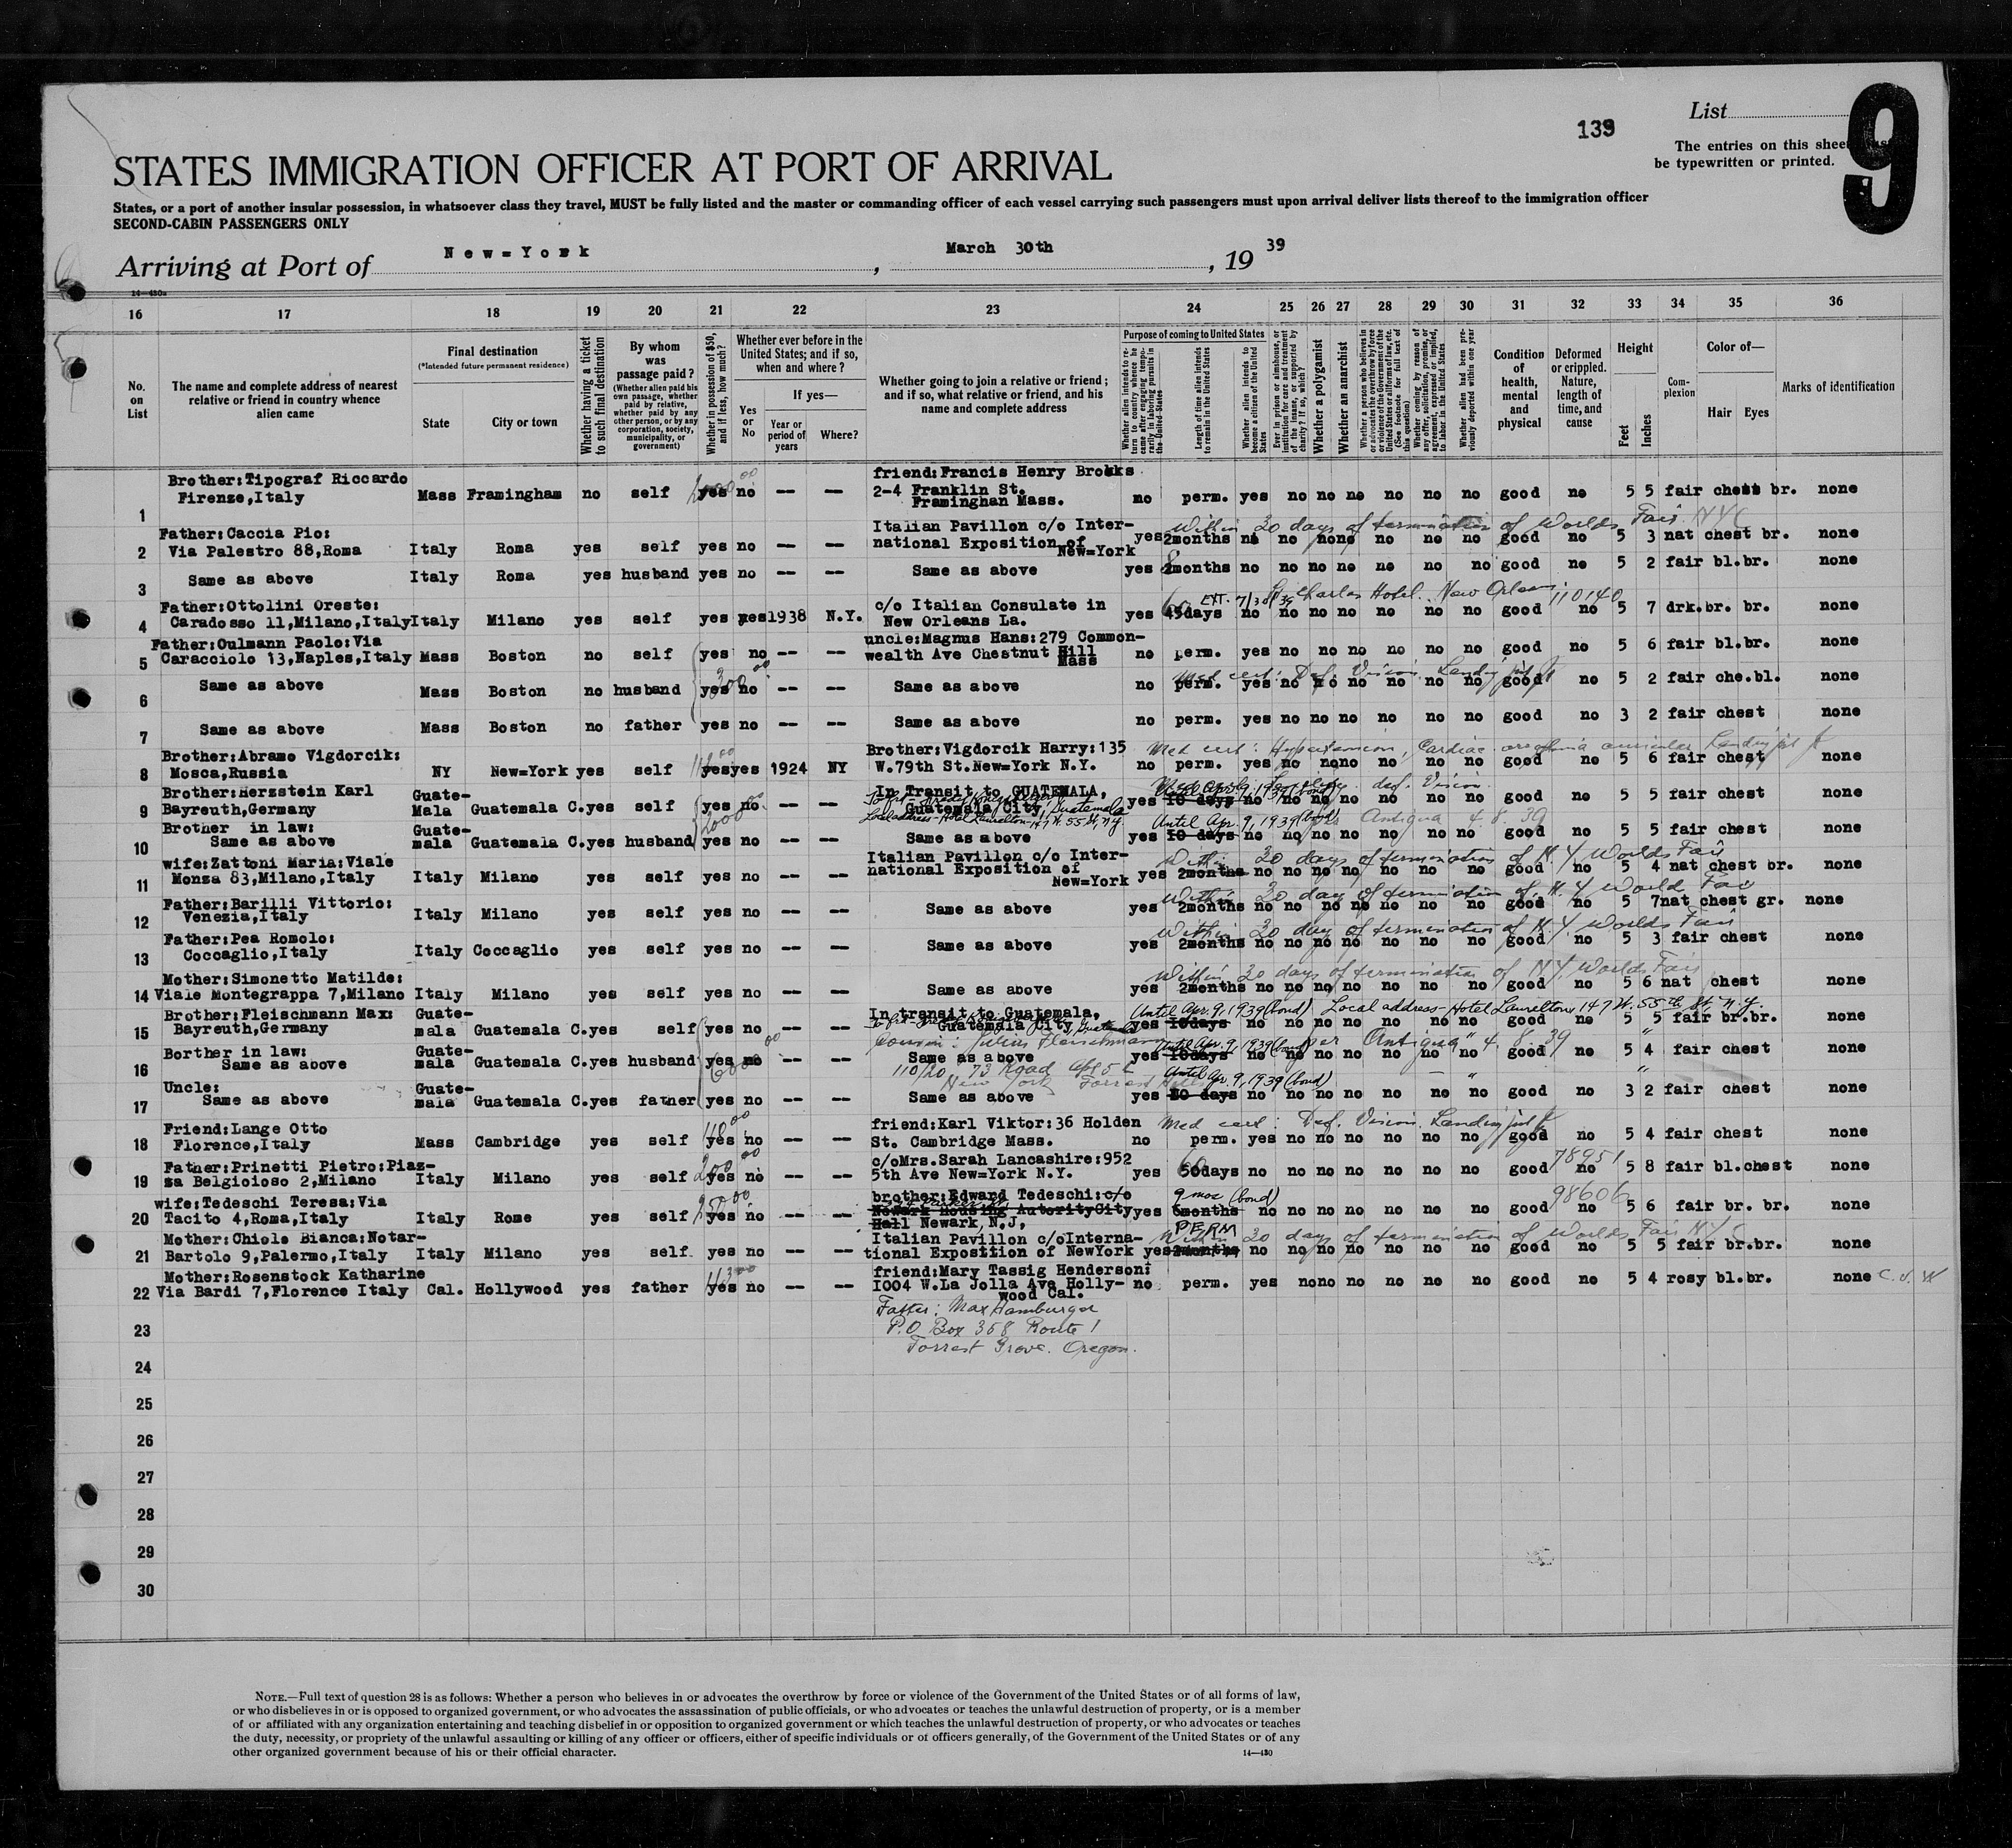 List
9
139
The entries on this sheet
be typewritten or printed.
STATES IMMIGRATION OFFICER AT PORT OF ARRIVAL
States, or a port of another insular possession, in whatsoever class they travel, MUST be fully listed and the master or commanding officer of each vessel carrying such passengers must upon arrival deliver lists thereof to the immigration officer
SECOND-CABIN PASSENGERS ONLY
Arriving at Port of New=York, March 30th, 19 39
14—430a
16 17 18 19 20 21 22 23 24 25 26 27 28 29 30 31 32 33 34 35 36
No. on List
The name and complete address of nearest relative or friend in country whence alien came
Final destination
(*Intended future permanent residence)
State
City or town
Whether having a ticket to such final destination
By whom was passage paid?
(Whether alien paid his own passage, whether paid by relative, whether paid by any other person, or by any corporation, society, municipality, or government)
Whether in possession of $50, and if less, how much?
Whether ever before in the United States; and if so, when and where?
Yes or No
If yes—
Year or period of years
Where?
Whether going to join a relative or friend; and if so, what relative or friend, and his name and complete address
Purpose of coming to United States
Length of time alien intends to remain in the United States
Whether alien intends to become a citizen of the United States
Whether a polygamist
Whether an anarchist
Condition of health, mental and physical
Deformed or crippled. Nature, length of time, and cause
Height
Feet
Inches
Complexion
Color of—
Hair
Eyes
Marks of identification
Brother:Tipograf Riccardo friend:Francis Henry Brooks
1 Firenze,Italy Mass Framingham no self yes no -- -- 2-4 Franklin St. Framinghan Mass. no perm. yes no no no no no no good no 5 5 fair chest br. none
Father:Caccia Pio: Italian Pavillon c/o Inter- Within 30 days of termination of Worlds Fair NYC
2 Via Palestro 88,Roma Italy Roma yes self yes no -- -- national Exposition of New=York yes 2months no no no no no no no good no 5 3 nat chest br. none
3 Same as above Italy Roma yes husband yes no -- -- Same as above yes 2months no no no no no no no good no 5 2 fair bl.br. none
Father:Ottolini Oreste: c/o Italian Consulate in EXT. 7/30/39 St Charles Hotel. New Orleans 110140
4 Caradosso 11,Milano,Italy Italy Milano yes self yes yes 1938 N.Y. New Orleans La. yes 45days no no no no no no no good no 5 7 drk.br. br. none
Father:Oulmann Paolo:Via uncle:Magnus Hans:279 Common-
5 Caracciolo 13,Naples,Italy Mass Boston no self yes no -- -- wealth Ave Chestnut Hill Mass no perm. yes no no no no no no good no 5 6 fair bl.br. none
Med cert: Def. Vision. Landing
6 Same as above Mass Boston no husband yes no -- -- Same as above no perm. yes no no no no no no good no 5 2 fair che.bl. none
7 Same as above Mass Boston no father yes no -- -- Same as above no perm. yes no no no no no no good no 3 2 fair chest none
Brother:Abramo Vigdorcik: Brother:Vigdorcik Harry:135 Med cert: Hypertension, Cardiac
8 Mosca,Russia NY New=York yes self yes yes 1924 NY W.79th St.New=York N.Y. no perm. yes no no no no no no good no 5 6 fair chest none
Brother:Herzstein Karl Guate- In Transit to GUATEMALA, def. Vision
9 Bayreuth,Germany Mala Guatemala C. yes self yes no -- -- Guatemala City, Guatemala yes 10 days no no no no no no no good no 5 5 fair chest none
Local address - Hotel Laurelton - 147 W. 55 St, N.Y.
Brother in law: Guate- Until Apr. 9, 1939 (bond) Antigua 4.8.39
10 Same as above mala Guatemala C. yes husband yes no -- -- Same as above yes 10 days no no no no no no no good no 5 5 fair chest none
wife:Zattoni Maria:Viale Italian Pavillon c/o Inter- Within 30 days of termination of N.Y Worlds Fair
11 Monza 83,Milano,Italy Italy Milano yes self yes no -- -- national Exposition of New=York yes 2months no no no no no no no good no 5 4 nat chest br. none
Father:Barilli Vittorio: Within 30 day of termination of N.Y World Fair
12 Venezia,Italy Italy Milano yes self yes no -- -- Same as above yes 2months no no no no no no no good no 5 7 nat chest gr. none
Father:Pea Romolo: Within 30 day of termination of N.Y. Worlds Fair
13 Coccaglio,Italy Italy Coccaglio yes self yes no -- -- Same as above yes 2months no no no no no no no good no 5 3 fair chest none
Mother:Simonetto Matilde: Within 30 days of termination of NY. Worlds Fair
14 Viale Montegrappa 7,Milano Italy Milano yes self yes no -- -- Same as above yes 2months no no no no no no no good no 5 6 nat chest none
Brother:Fleischmann Max: Guate- In transit to Guatemala, Until Apr. 9, 1939 (bond) Local address - Hotel Laurelton, 147 W. 55th St. N.Y.
15 Bayreuth,Germany mala Guatemala C. yes self yes no -- -- Guatemala City yes 10days no no no no no no no good no 5 5 fair br.br. none
Cousin: Julius Fleischmann
Borther in law: Guate- Until Apr. 9, 1939 (bond) per Antigua 4.8.39
16 Same as above mala Guatemala C. yes husband yes no -- -- Same as above yes 10days no no no no no no no good no 5 4 fair chest none
110/20 73 Road Apt 5 New York Forrest Hills
Uncle: Guate- Until Apr. 9, 1939 (bond)
17 Same as above mala Guatemala C. yes father yes no -- -- Same as above yes 10 days no no no no no no no good no 3 2 fair chest none
Friend:Lange Otto friend:Karl Viktor:36 Holden Med cert: Def. Vision. Landing
18 Florence,Italy Mass Cambridge yes self yes no -- -- St. Cambridge Mass. no perm. yes no no no no no no good no 5 4 fair chest none
Father:Prinetti Pietro:Piaz- c/oMrs.Sarah Lancashire:952 78951
19 za Belgioioso 2,Milano Italy Milano yes self 200 00 yes no -- -- 5th Ave New=York N.Y. yes 60days no no no no no no no good no 5 8 fair bl.chest none
wife:Tedeschi Teresa:Via brother:Edward Tedeschi:c/o 9 mos (bond) 98606
20 Tacito 4,Roma,Italy Italy Rome yes self yes no -- -- Newark Housing AutorityCity Hall Newark,N.J, yes 6months no no no no no no no good no 5 6 fair br. br. none
PERM
Mother:Chiole Bianca:Notar- Italian Pavillon c/oInterna- Within 30 days of termination of Worlds Fair NYC
21 Bartolo 9,Palermo,Italy Italy Milano yes self yes no -- -- tional Exposition of NewYork yes 2months no no no no no no no good no 5 5 fair br.br. none
Mother:Rosenstock Katharine friend:Mary Tassig Henderson:
22 Via Bardi 7,Florence Italy Cal. Hollywood yes father yes no -- -- 1004 W.La Jolla Ave Holly-wood Cal. no perm. yes no no no no no no good no 5 4 rosy bl.br. none
Father: Max Hamburger
23 P.O Box 358 Route 1
Forrest Grove. Oregon.
24
25
26
27
28
29
30
NOTE.—Full text of question 28 is as follows: Whether a person who believes in or advocates the overthrow by force or violence of the Government of the United States or of all forms of law,
or who disbelieves in or is opposed to organized government, or who advocates the assassination of public officials, or who advocates or teaches the unlawful destruction of property, or is a member
of or affiliated with any organization entertaining and teaching disbelief in or opposition to organized government or which teaches the unlawful destruction of property, or who advocates or teaches
the duty, necessity, or propriety of the unlawful assaulting or killing of any officer or officers, either of specific individuals or of officers generally, of the Government of the United States or of any
other organized government because of his or their official character.
14—430